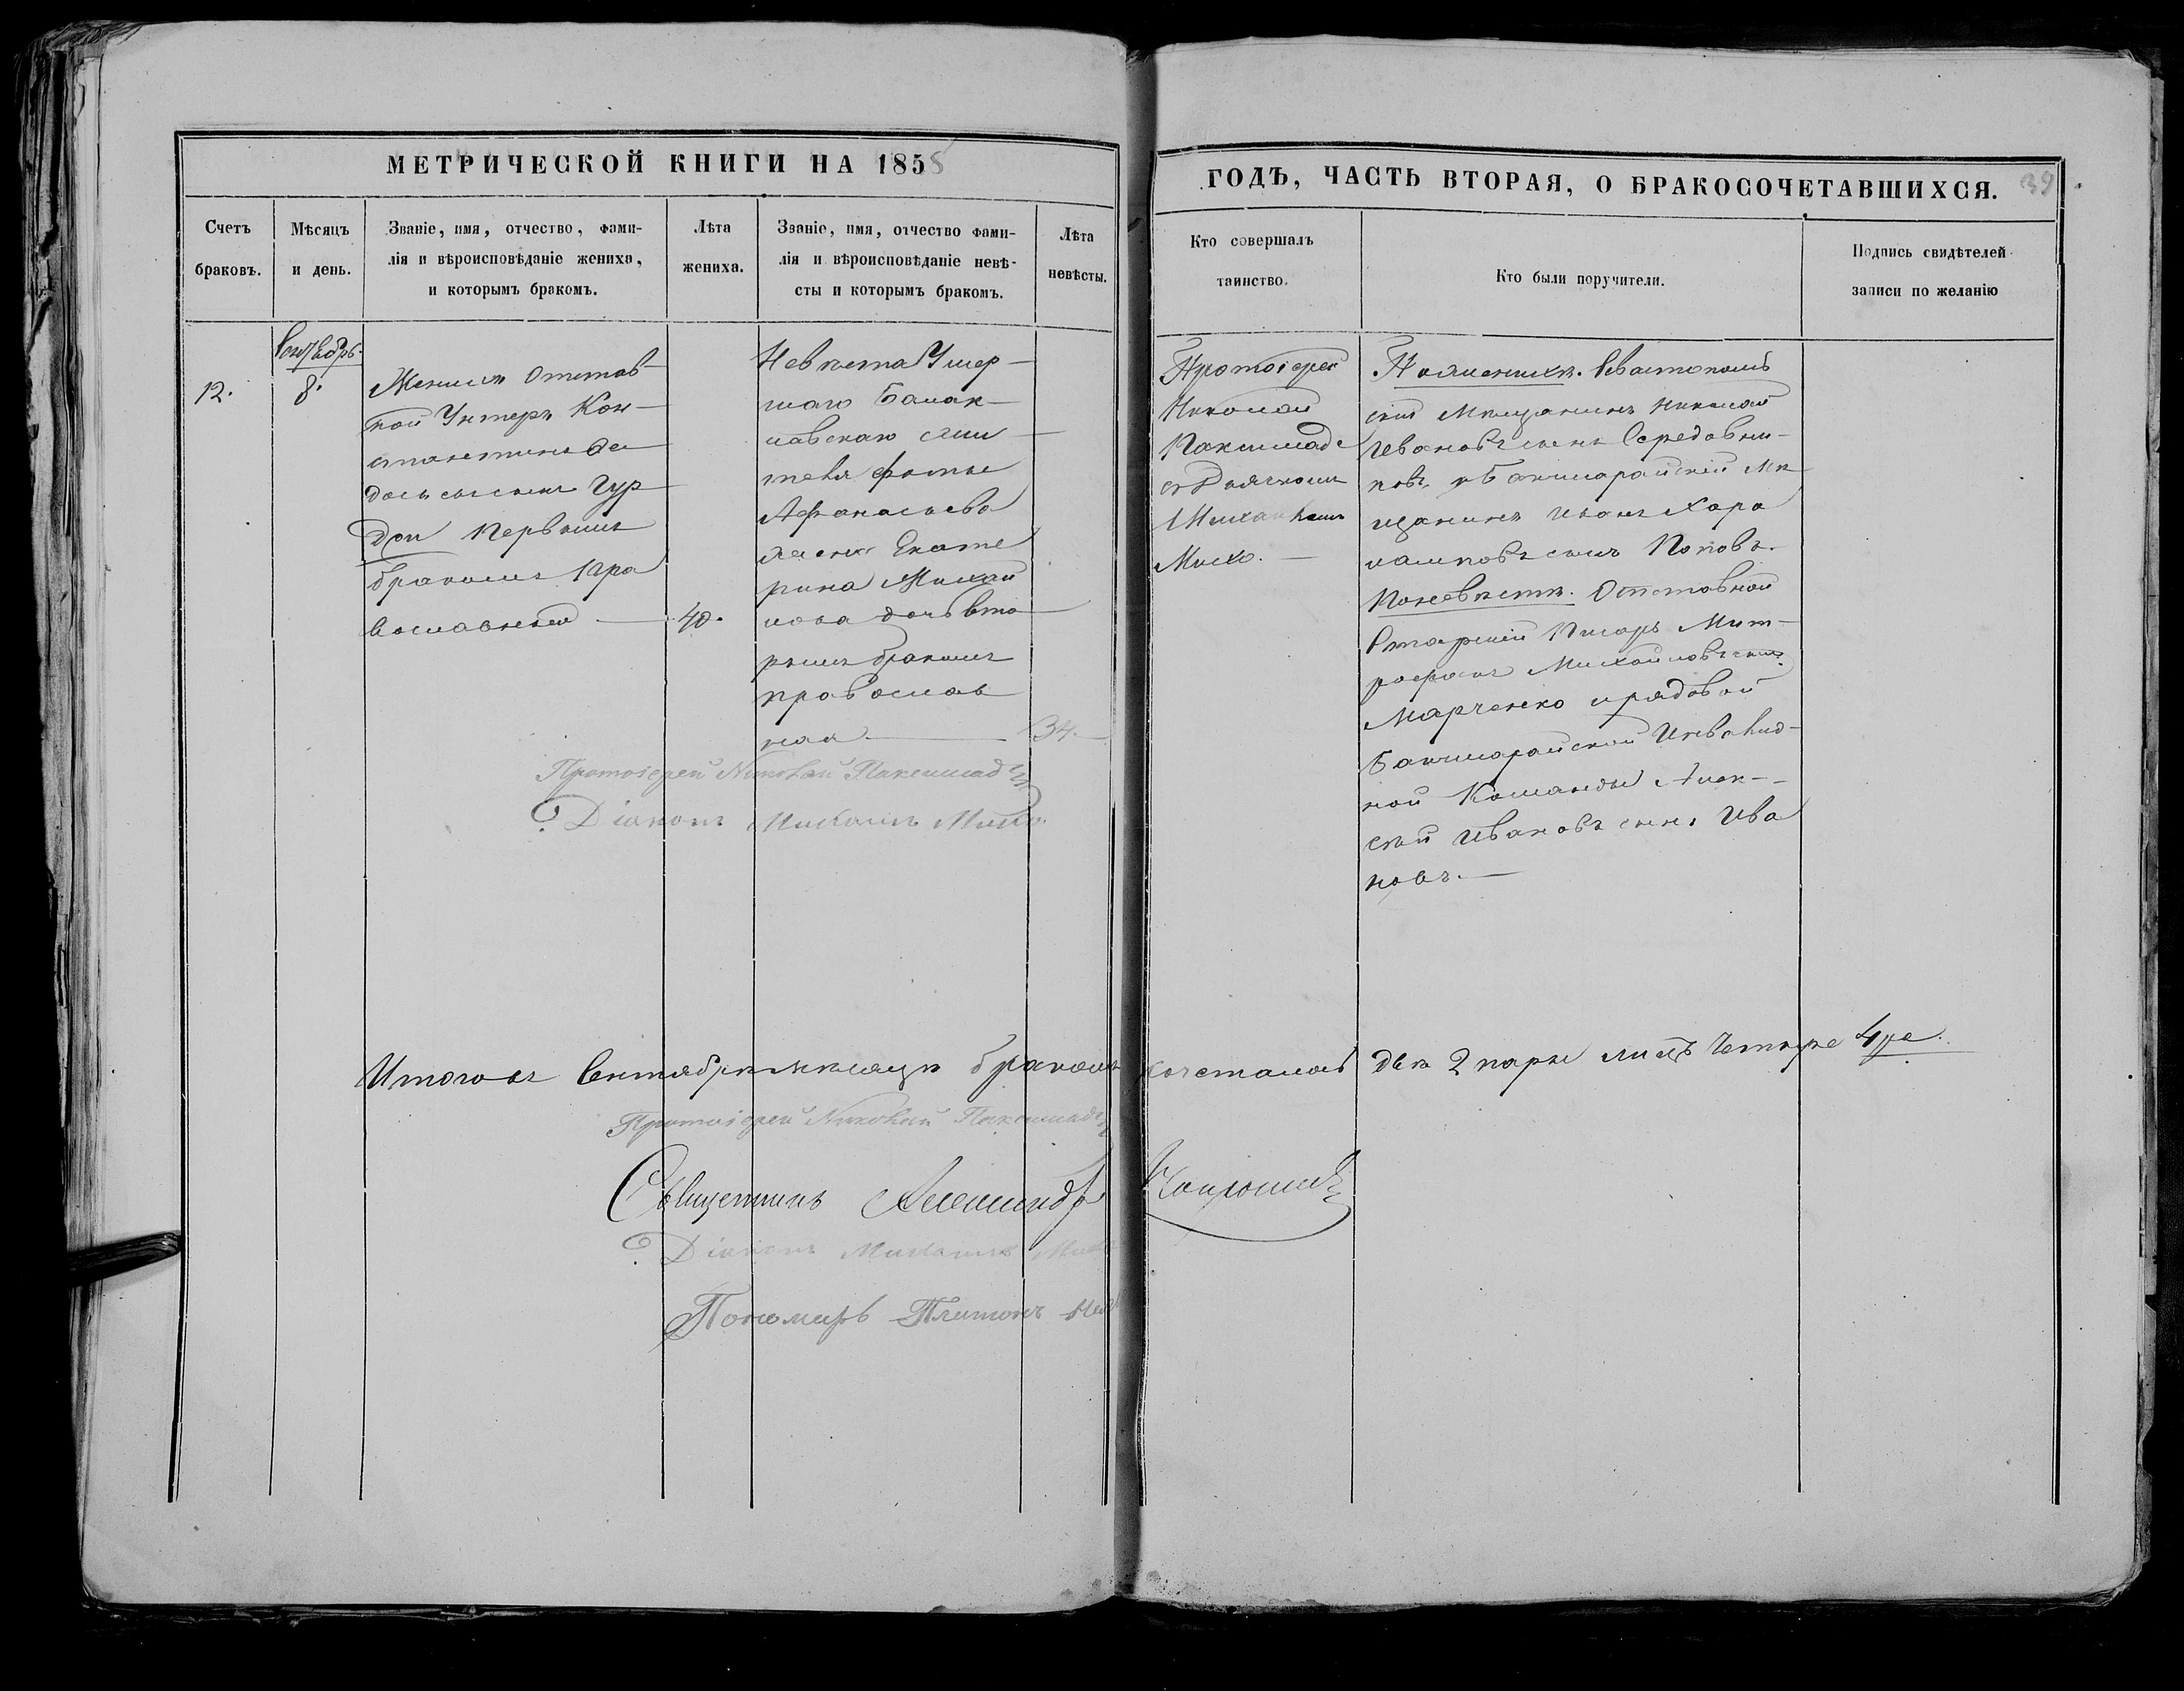 МЕТРИЧЕСКОЙ КНИГИ НА 1858
ГОДЪ, ЧАСТЬ ВТОРАЯ, О БРАКОСОЧЕТАВШИХСЯ.
39
Счетъ
браковъ.
Мѣсяцъ
и день.
Званіе, имя, отчество, фами-
лія и вѣроисповѣданіе жениха,
и которымъ бракомъ.
Лѣта
жениха.
Званіе, имя, отчество фами-
лія и вѣроисповѣданіе невѣ-
сты и которымъ бракомъ.
Лѣта
невѣсты.
Кто совершалъ
таинство.
Кто были поручители.
Подпись свидѣтелей
записи по желанію
12.
Сентябрь.
8.
Женихъ Отстав
ной Унтеръ Кон-
стантинъ
сынъ Гур
джи Первымъ
бракомъ Пра
вославный
40.
Невѣста Умер-
шаго Балак-
лавскаго жи
теля Фотія
Афанасьева
жена Екате
рина Михай
лова дочь вто
рымъ бракомъ
православ
ная.
34.
Протоіерей
Николай
Паксимаде
съ Діякономъ
Михаиломъ
Михо.
По женихѣ. Севастополь
скій Мѣщанинъ Николай
Ивановъ сынъ Середовни-
ковъ, и Бакчисарайскій Мѣ
щанинъ Иванъ Хара
ламповъ сынъ Поповъ.
По невѣстѣ. Отставной
Старшій Писарь Мит-
рофанъ Михайловъ сынъ
Марченко и рядовой
Бакчисарайской Инвалид-
ной Команды Алек-
сѣй Ивановъ сынъ Ива
новъ.
Протоіерей Николай Паксимади
Діаконъ Михаилъ Михо.
Итого въ Сентябрѣ мѣсяцѣ бракомъ сочеталось двѣ 2 пары лицъ Четыре 4ре.
Протоіерей Николай Паксимади
Священникъ Александръ
Діаконъ Михаилъ Михо
Пономарь Платонъ